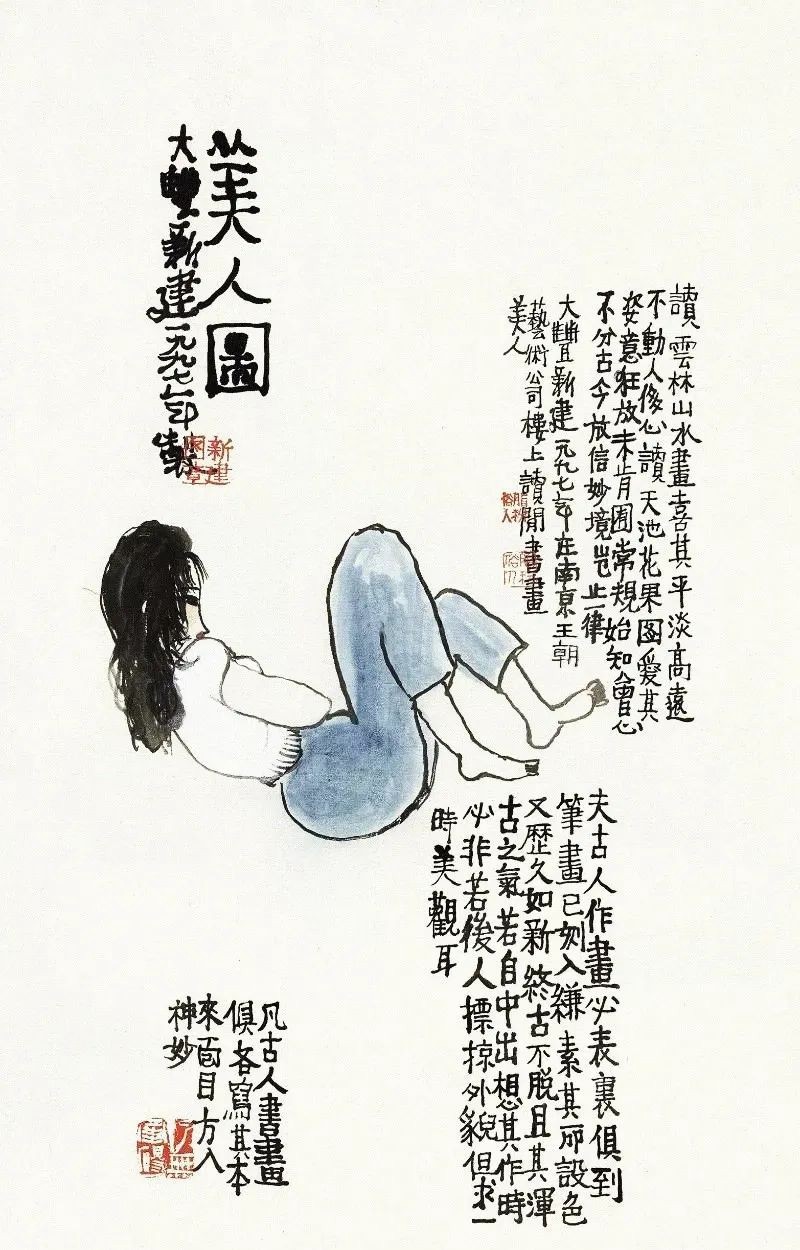 美人圖
大豐新建一九九七年製
新建圖章
讀雲林山水畫喜其平淡高遠
不動人俗心讀天池花果圖愛其
姿意狂放未肯囿常規始知會心
不分古今放信妙境豈止一律
大豐新建一九九七年在南京王朝
藝術公司樓上讀閒書畫
美人
夫古人作畫必表裏俱到
筆畫已刻入縑素其所設色
又歷久如新終古不脫且其渾
古之氣若自中出想其作時
必非若後人摽掠外貌但求一
時美觀耳
凡古人書畫
俱各寫其本
來面目方入
神妙